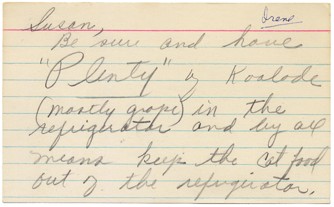 Irene
Susan,
Be sure and have
"Plenty" of Koolade
(mostly grape) in the
refrigirator and by all
means keep the cat food
out of the refrigirator.